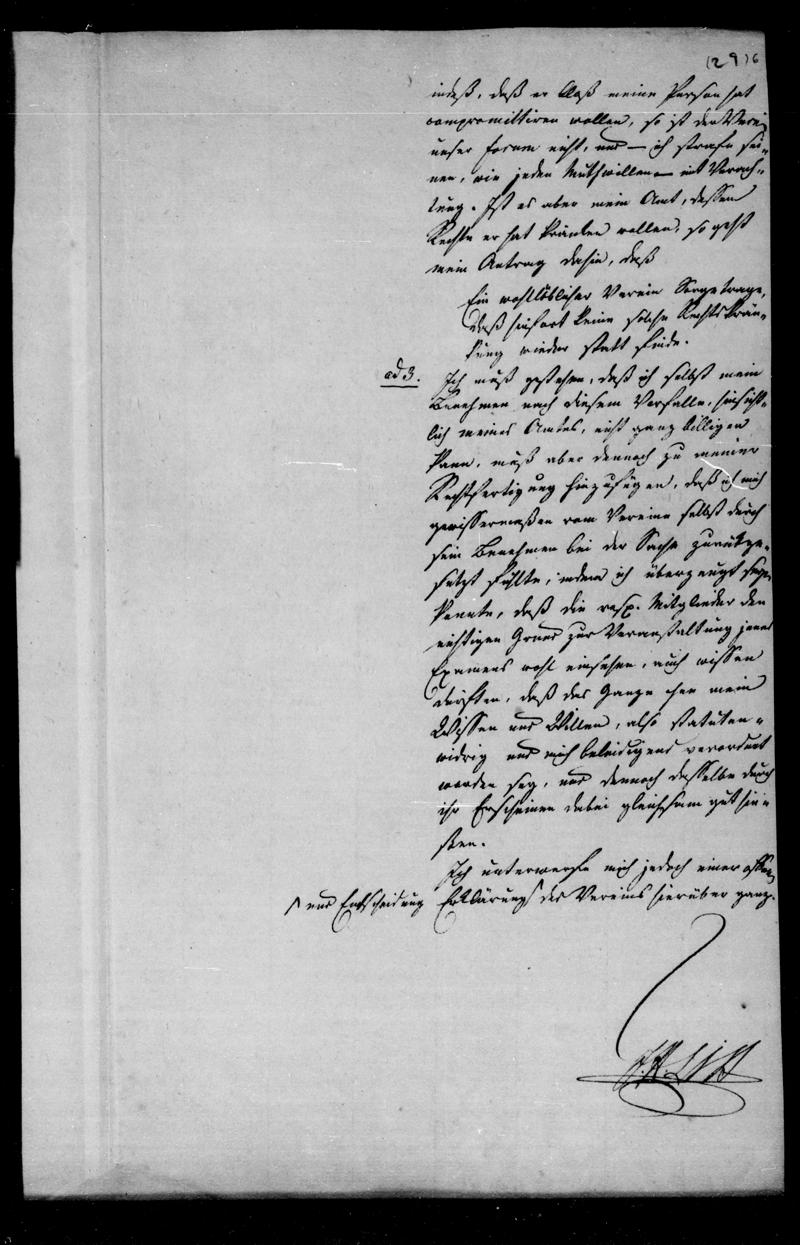 (29)6
indeß, daß er bloß meine Person hat
compromittiren wollen, so ist der Verein
unser forum nicht, und — ich strafe sei-
nen, wie jeden Muthwillen — mit Verach-
tung. Ist es aber mein Amt, dessen
Rechte er hat kränken wollen, so geht
mein Antrag dahin, daß
Ein wohllöblicher Verein Sorge trage,
daß hinfort keine solche Rechtskrän-
kung wieder statt finde.
ad 3. Ich muß gestehen, daß ich selbst mein
Benehmen nach diesem Vorfalle, hinsicht-
lich meines Amtes, nicht ganz billigen
kann, muß aber dennoch zu meiner
Rechtfertigung hinzufügen, daß ich mich
gewissermaßen vom Vereine selbst durch
sein Benehmen bei der Sache zurückge-
setzt fühlte, indem ich überzeugt seyn
konnte, daß die resp. Mitglieder den
richtigen Grund zur Veranstaltung jenes
Examens wohl einsehen, auch wissen
dürften, daß das Ganze ohne mein
Wissen und Willen, also statuten-
widrig und mich beleidigend verordnet
worden sey, und dennoch dasselbe durch
ihr Erscheinen dabei gleichsam gut hie-
ßen.
Ich unterwerfe mich jedoch einer
Erklärung des Vereins hierüber ganz.
und Entscheidung